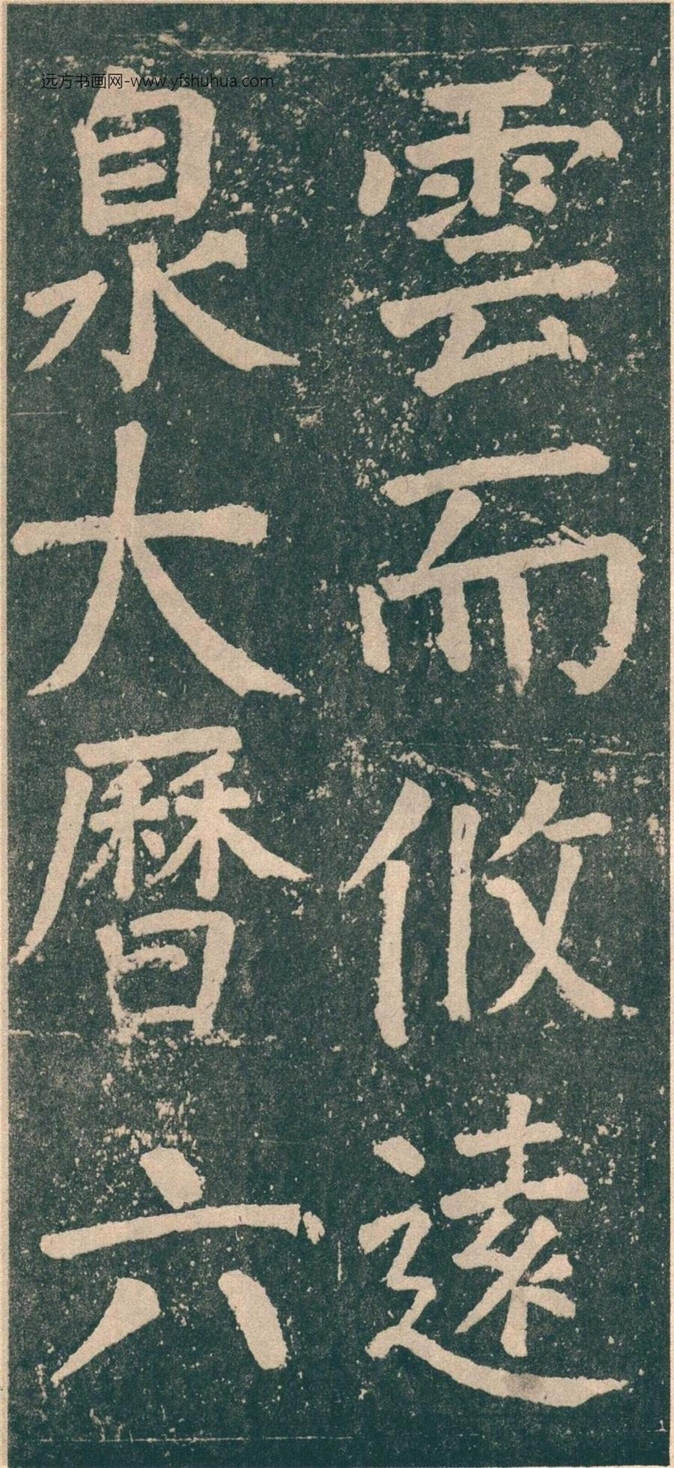 远方书画网-www.yfshuhua.com
雲而攸遠
泉大曆六